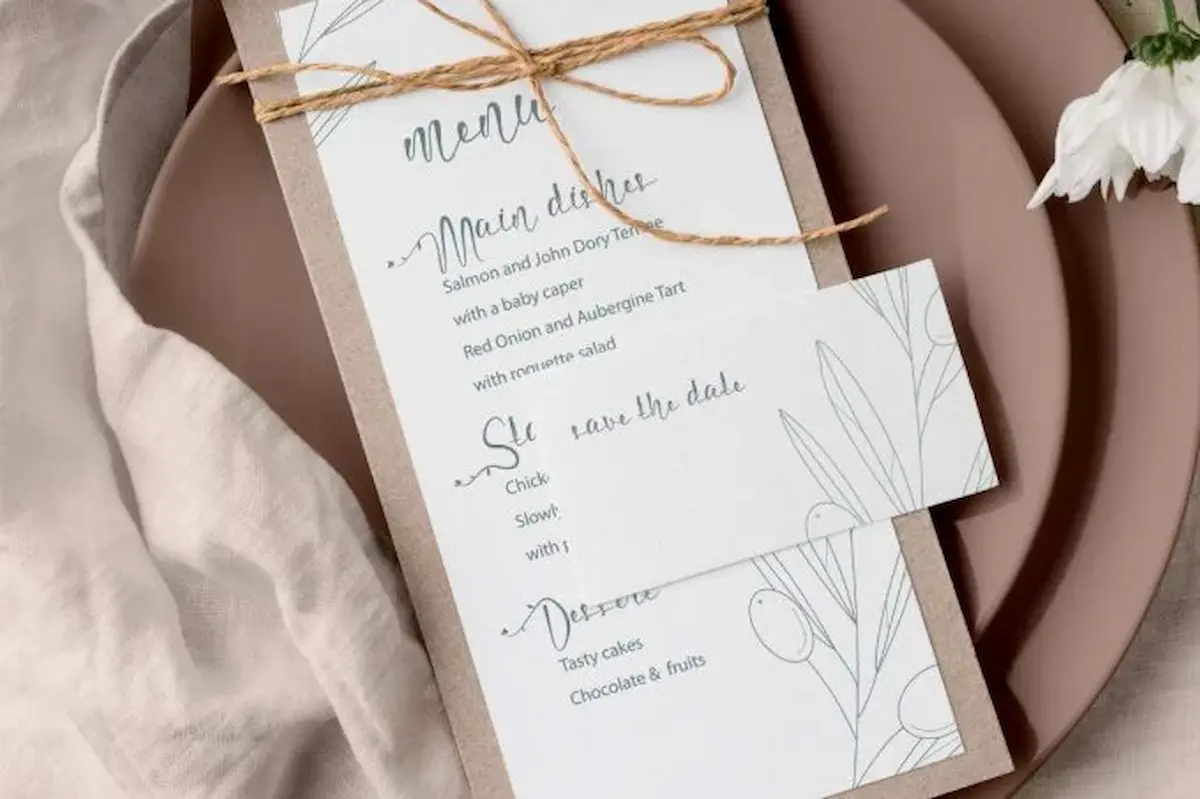 menu
Main dishes
Salmon and John Dory Terrine
with a baby caper
Red Onion and Aubergine Tart
with roquette salad
save the date
Slowly
with
Dessert
Tasty cakes
Chocolate & fruits